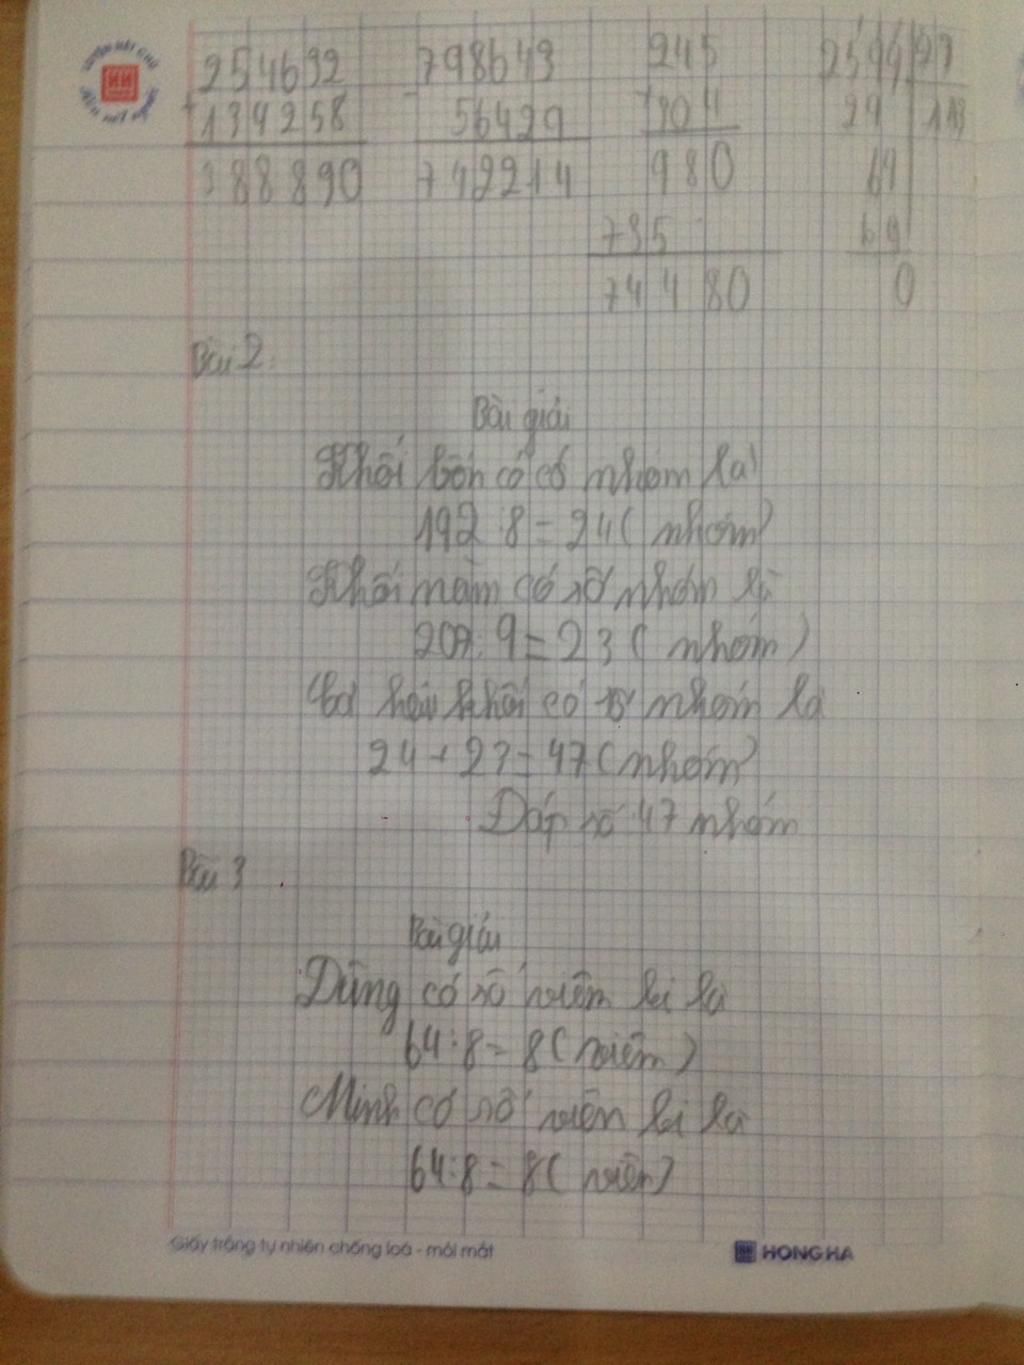 254632 798643 245 2599 23
+ 134258 - 56429 × 304 29 113
388890 742214 980 69
735 69
74480 0
Bài 2:
Bài giải
Khối bốn có số nhóm là
192 : 8 = 24 ( nhóm )
Khối năm có số nhóm là
207 : 9 = 23 ( nhóm )
Cả hai khối có số nhóm là
24 + 23 = 47 ( nhóm )
Đáp số 47 nhóm
Bài 3
Bài giải
Dũng có số viên bi là
64 : 8 = 8 ( viên )
Minh có số viên bi là
64 : 8 = 8 ( viên )
Giấy trắng tự nhiên chống loá - mỏi mắt HONG HA